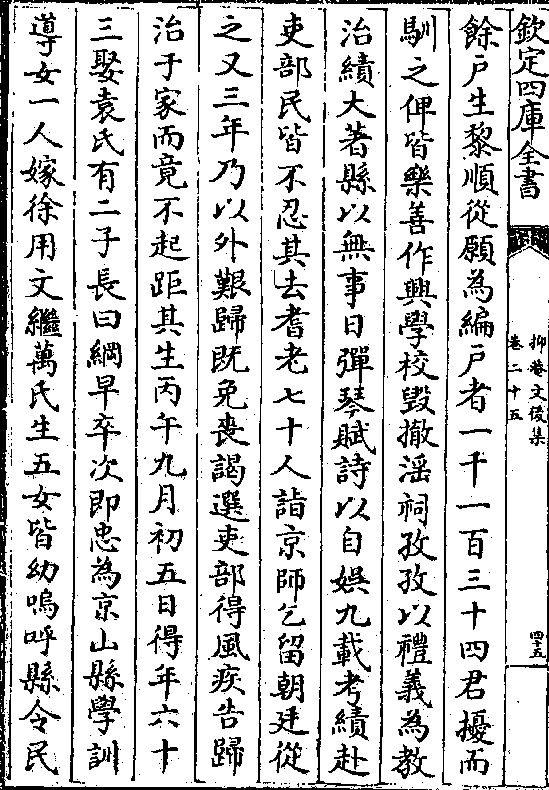 欽定四庫全書
抑菴文後集
卷二十五
四五
餘戶生黎順從願為編戶者一千一百三十四君擾而
馴之俾皆樂善作興學校毀撤滛祠孜孜以禮義為教
治績大著縣以無事日彈琴賦詩以自娱九載考績赴
吏部民皆不忍其去耆老七十人詣京師乞留朝廷從
之又三年乃以外艱歸既免喪謁選吏部得風疾告歸
治于家而竟不起距其生丙午九月初五日得年六十
三娶袁氏有二子長曰綱早卒次即忠為京山縣學訓
導女一人嫁徐用文繼萬氏生五女皆幼嗚呼縣令民